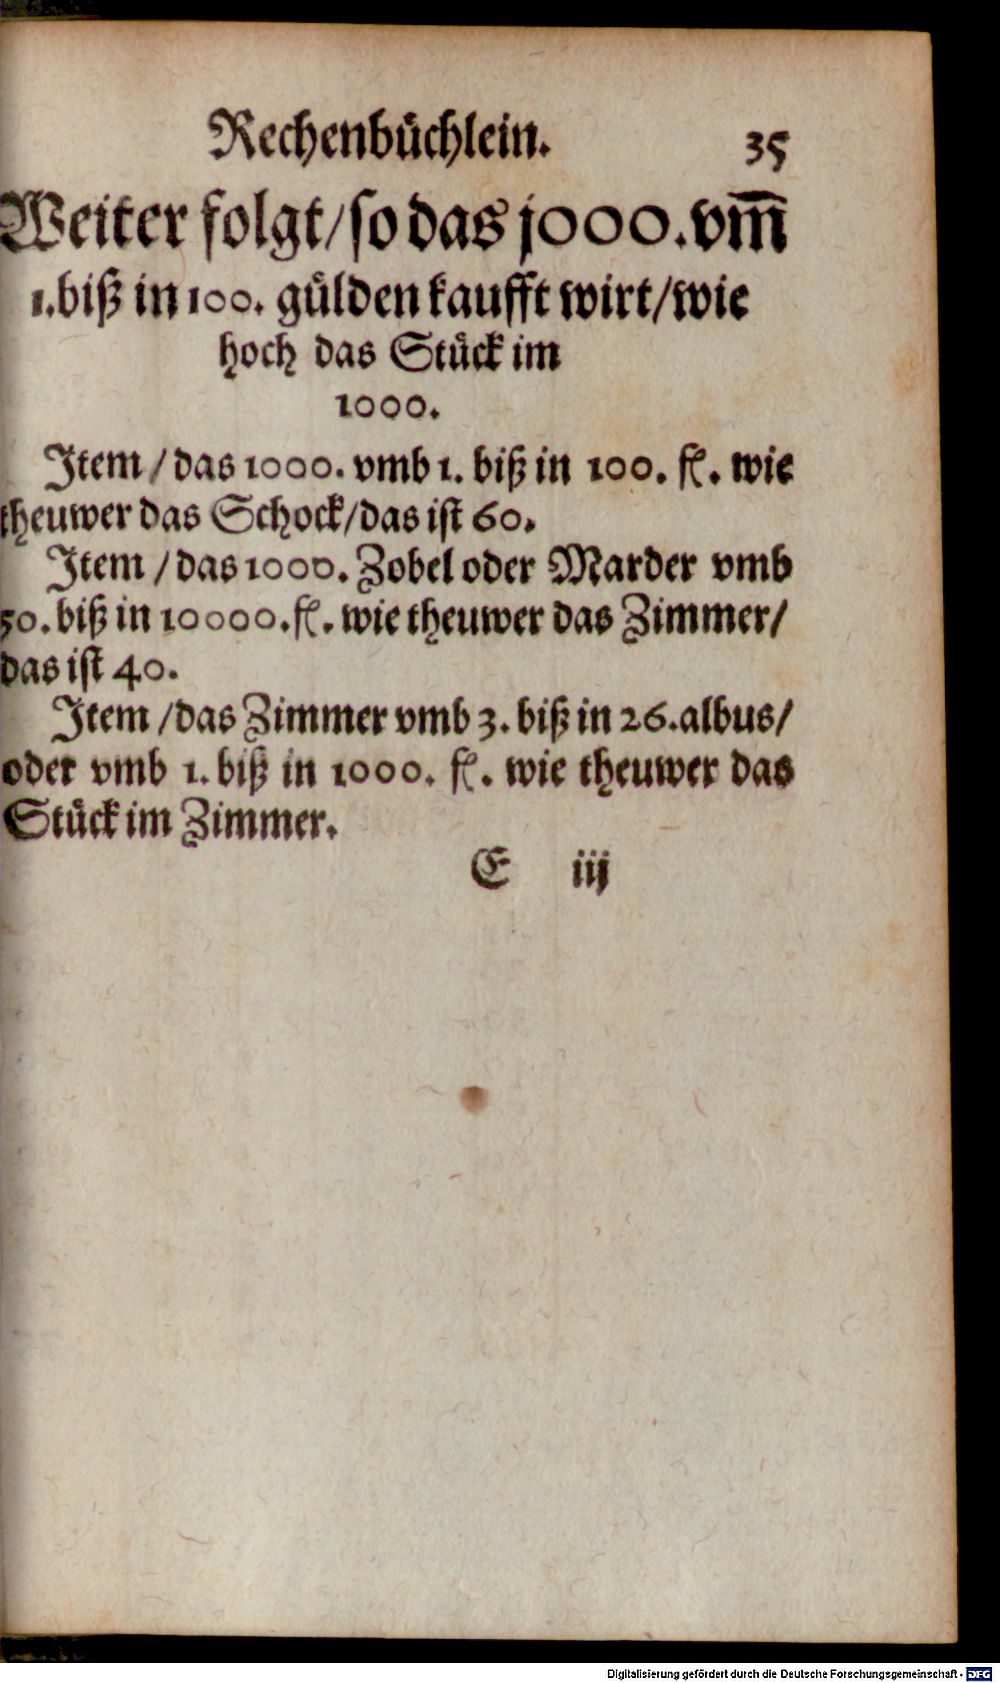 Rechenbuͤchlein. 35
Weiter folgt/so das j000.vm̄
1.biß in 100. guͤlden kaufft wirt/wie
hoch das Stuͤck im
1000.
Item/das 1000. vmb 1. biß in 100. fl. wie
theuwer das Schock/das ist 60.
Item/das 1000. Zobel oder Marder vmb
50. biß in 10000.fl. wie theuwer das Zimmer/
das ist 40.
Item/das Zimmer vmb 3. biß in 26.albus/
oder vmb 1. biß in 1000. fl. wie theuwer das
Stuͤck im Zimmer.
E iij
Digitalisierung gefördert durch die Deutsche Forschungsgemeinschaft - DFG